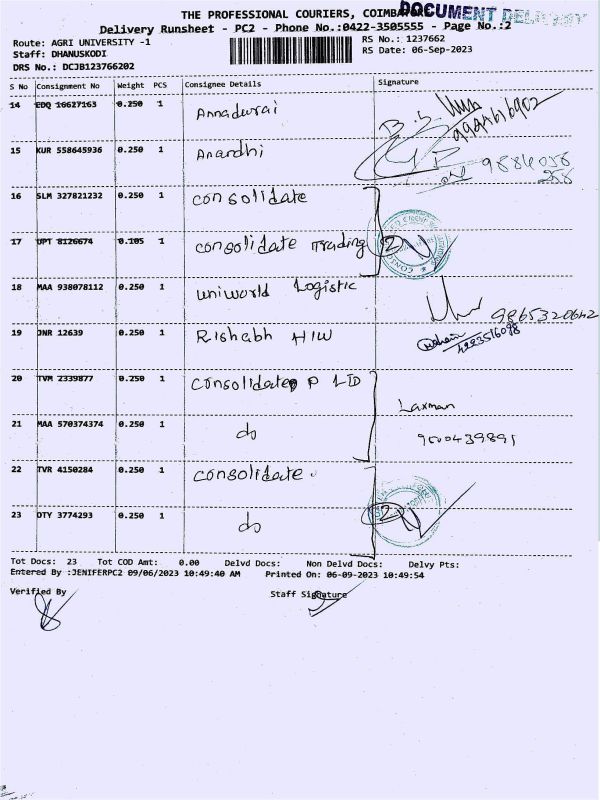 THE PROFESSIONAL COURIERS, COIMBATORE
DOCUMENT DELIVERY
Delivery Runsheet - PC2 - Phone No.:0422-3505555 - Page No.:2
Route: AGRI UNIVERSITY -1
RS No.: 1237662
Staff: DHANUSKODI
RS Date: 06-Sep-2023
DRS No.: DCJB123766202
S No Consignment No Weight PCS Consignee Details Signature
14 EDQ 16627163 0.250 1 Annadurai
15 KUR 558645936 0.250 1 Anandhi
16 SLM 327821232 0.250 1 consolidate
17 UPT 8126674 0.105 1 consolidate Trading 2
18 MAA 938078112 0.250 1 uniworld Logistic 9865320642
19 JNR 12639 0.250 1 Rishabh H/W
20 TVM 2339877 0.250 1 Consolidate P LTD Laxman
21 MAA 570374374 0.250 1 do 9500439891
22 TVR 4150284 0.250 1 consolidate
23 OTY 3774293 0.250 1 do 2
Tot Docs: 23 Tot COD Amt: 0.00 Delvd Docs: Non Delvd Docs: Delvy Pts:
Entered By :JENIFERPC2 09/06/2023 10:49:40 AM Printed On: 06-09-2023 10:49:54
Verified By Staff Signature